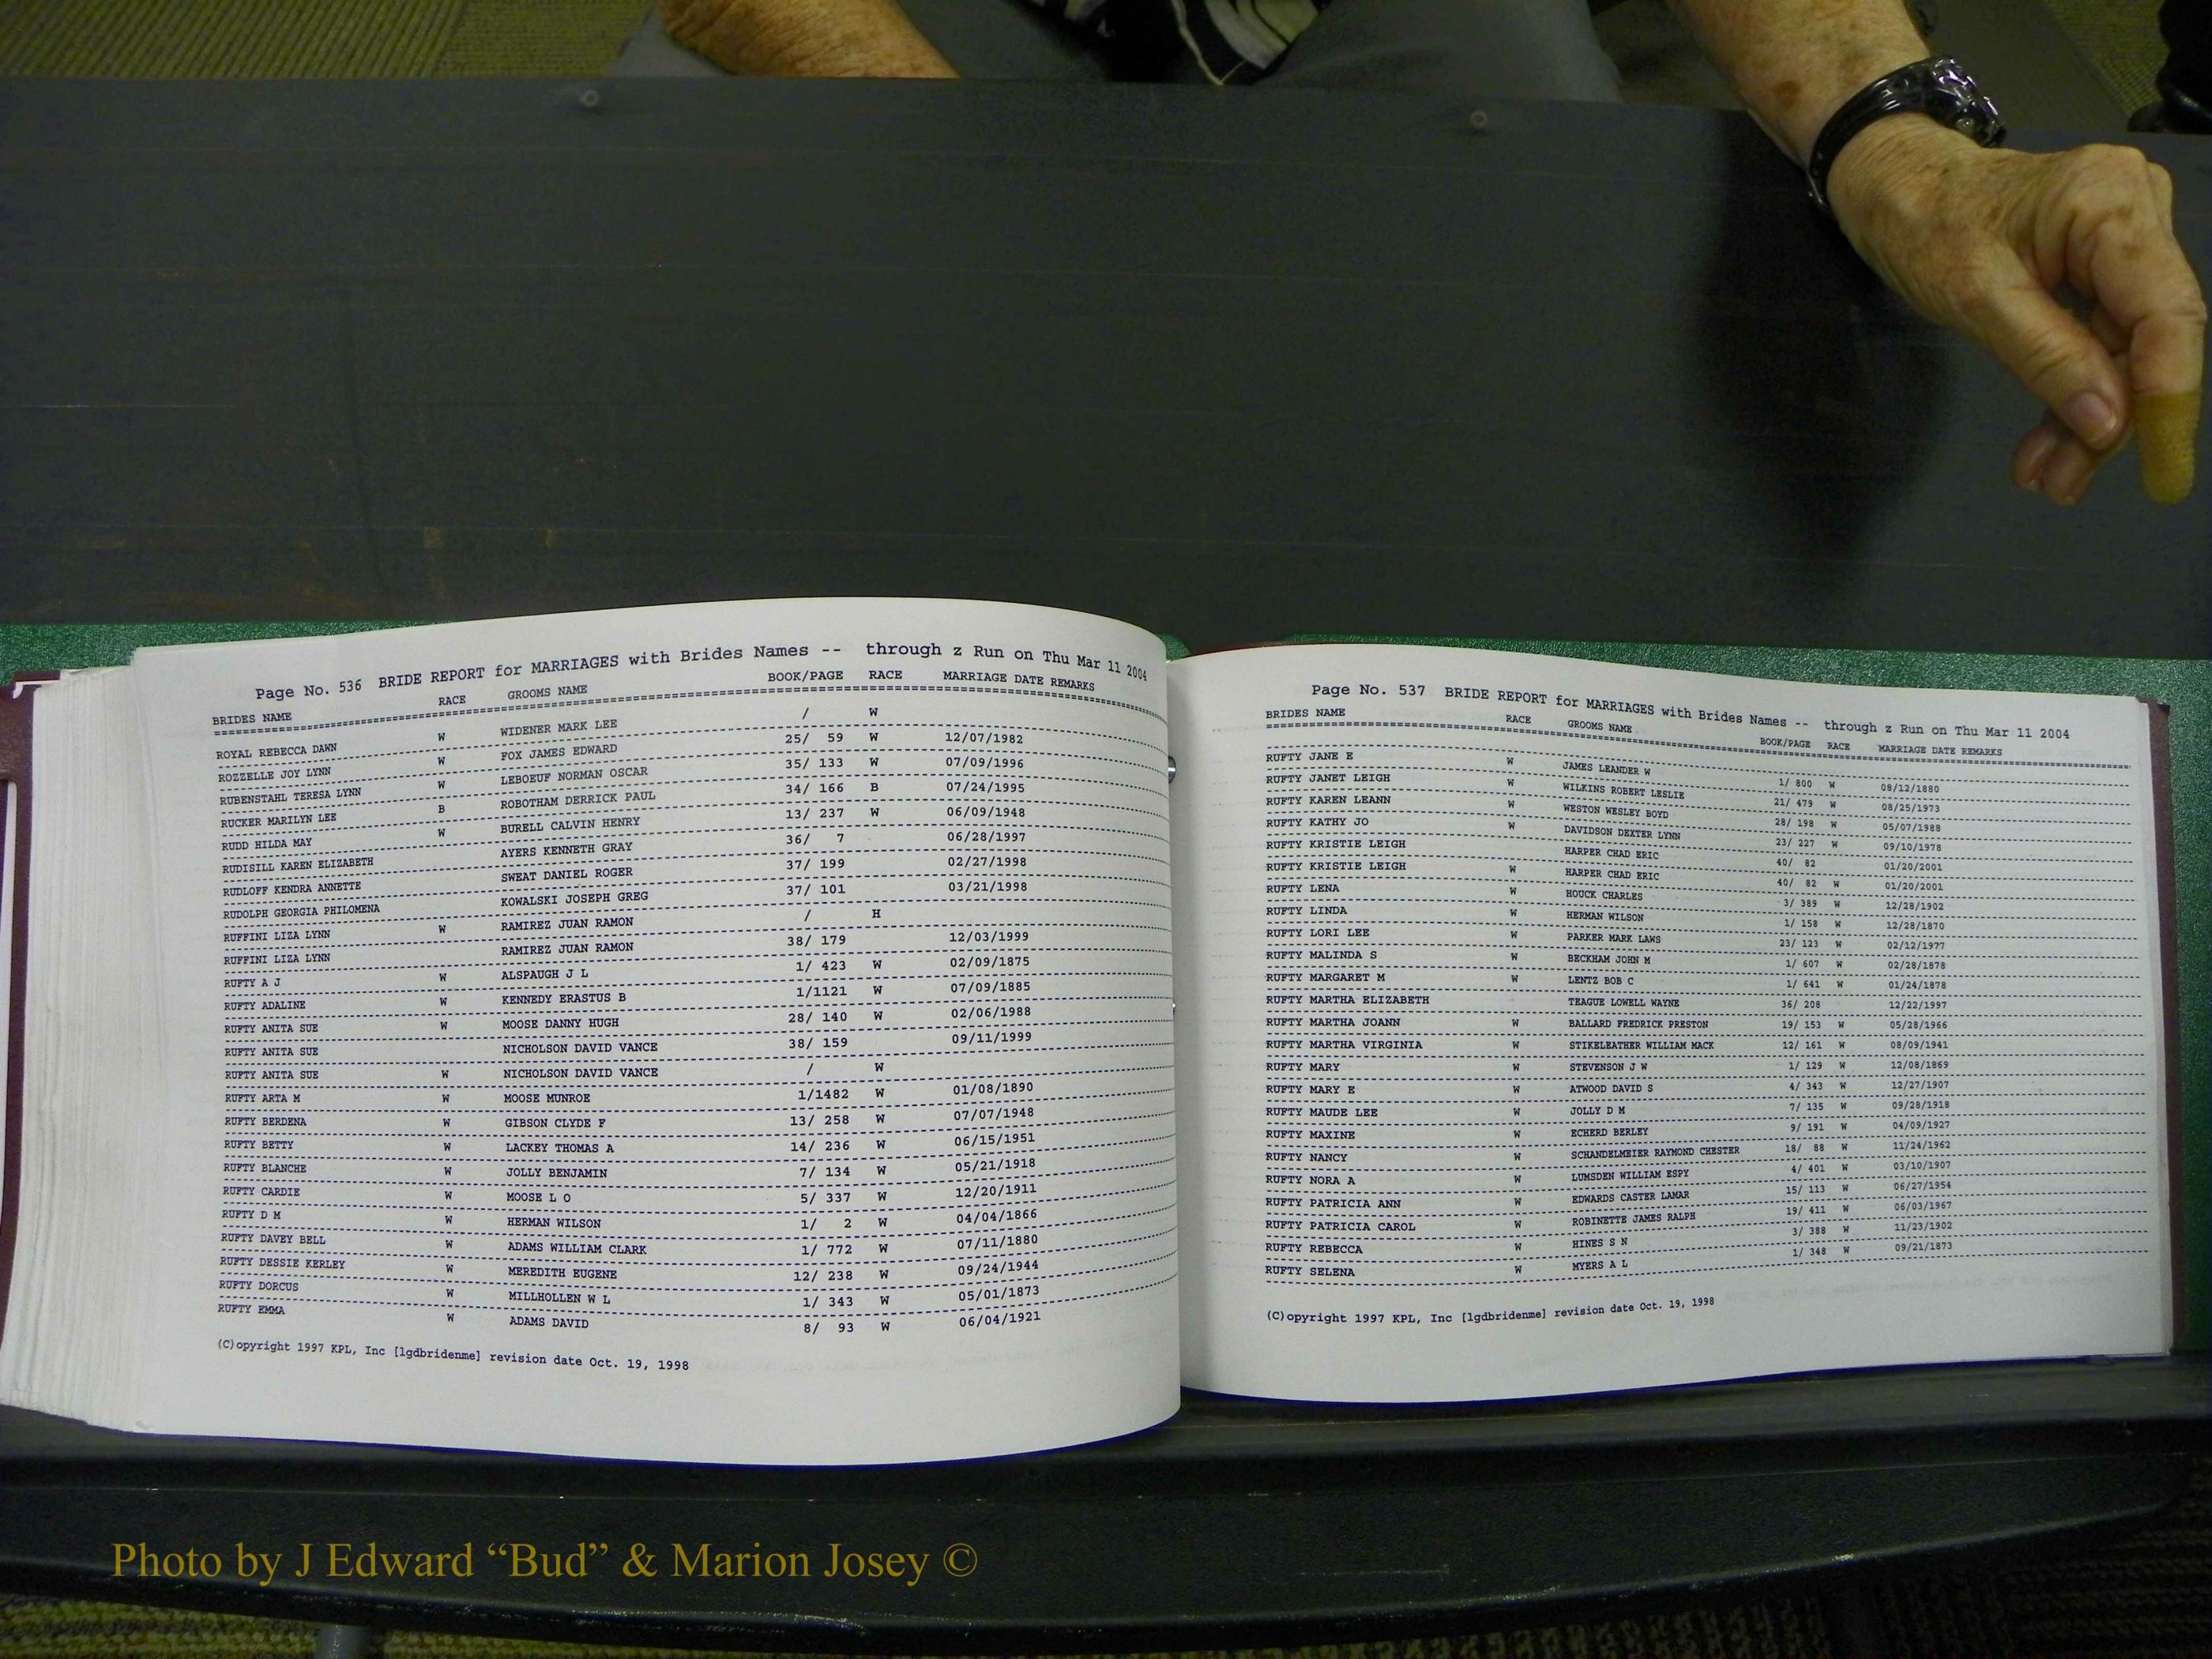 Page No. 536 BRIDE REPORT for MARRIAGES with Brides Names -- through z Run on Thu Mar 11 2004
BRIDES NAME RACE GROOMS NAME BOOK/PAGE RACE MARRIAGE DATE REMARKS
ROYAL REBECCA DAWN W WIDENER MARK LEE / W
ROZZELLE JOY LYNN W FOX JAMES EDWARD 25/ 59 W 12/07/1982
RUBENSTAHL TERESA LYNN W LEBOEUF NORMAN OSCAR 35/ 133 W 07/09/1996
RUCKER MARILYN LEE B ROBOTHAM DERRICK PAUL 34/ 166 B 07/24/1995
RUDD HILDA MAY W BURELL CALVIN HENRY 13/ 237 W 06/09/1948
RUDISILL KAREN ELIZABETH AYERS KENNETH GRAY 36/ 7 06/28/1997
RUDLOFF KENDRA ANNETTE SWEAT DANIEL ROGER 37/ 199 02/27/1998
RUDOLPH GEORGIA PHILOMENA KOWALSKI JOSEPH GREG 37/ 101 03/21/1998
RUFFINI LIZA LYNN W RAMIREZ JUAN RAMON / H
RUFFINI LIZA LYNN RAMIREZ JUAN RAMON 38/ 179 12/03/1999
RUFTY A J W ALSPAUGH J L 1/ 423 W 02/09/1875
RUFTY ADALINE W KENNEDY ERASTUS B 1/1121 W 07/09/1885
RUFTY ANITA SUE W MOOSE DANNY HUGH 28/ 140 W 02/06/1988
RUFTY ANITA SUE NICHOLSON DAVID VANCE 38/ 159 09/11/1999
RUFTY ANITA SUE W NICHOLSON DAVID VANCE / W
RUFTY ARTA M W MOOSE MUNROE 1/1482 W 01/08/1890
RUFTY BERDENA W GIBSON CLYDE F 13/ 258 W 07/07/1948
RUFTY BETTY W LACKEY THOMAS A 14/ 236 W 06/15/1951
RUFTY BLANCHE W JOLLY BENJAMIN 7/ 134 W 05/21/1918
RUFTY CARDIE W MOOSE L O 5/ 337 W 12/20/1911
RUFTY D M W HERMAN WILSON 1/ 2 W 04/04/1866
RUFTY DAVEY BELL W ADAMS WILLIAM CLARK 1/ 772 W 07/11/1880
RUFTY DESSIE KERLEY W MEREDITH EUGENE 12/ 238 W 09/24/1944
RUFTY DORCUS W MILLHOLLEN W L 1/ 343 W 05/01/1873
RUFTY EMMA W ADAMS DAVID 8/ 93 W 06/04/1921
(C)opyright 1997 KPL, Inc [lgdbridenme] revision date Oct. 19, 1998
Page No. 537 BRIDE REPORT for MARRIAGES with Brides Names -- through z Run on Thu Mar 11 2004
BRIDES NAME RACE GROOMS NAME BOOK/PAGE RACE MARRIAGE DATE REMARKS
RUFTY JANE E W JAMES LEANDER W 1/ 800 W 08/12/1880
RUFTY JANET LEIGH W WILKINS ROBERT LESLIE 21/ 479 W 08/25/1973
RUFTY KAREN LEANN W WESTON WESLEY BOYD 28/ 198 W 05/07/1988
RUFTY KATHY JO W DAVIDSON DEXTER LYNN 23/ 227 W 09/10/1978
RUFTY KRISTIE LEIGH HARPER CHAD ERIC 40/ 82 01/20/2001
RUFTY KRISTIE LEIGH W HARPER CHAD ERIC 40/ 82 W 01/20/2001
RUFTY LENA W HOUCK CHARLES 3/ 389 W 12/28/1902
RUFTY LINDA W HERMAN WILSON 1/ 158 W 12/28/1870
RUFTY LORI LEE W PARKER MARK LAWS 23/ 123 W 02/12/1977
RUFTY MALINDA S W BECKHAM JOHN M 1/ 607 W 02/28/1878
RUFTY MARGARET M W LENTZ BOB C 1/ 641 W 01/24/1878
RUFTY MARTHA ELIZABETH TEAGUE LOWELL WAYNE 36/ 208 12/22/1997
RUFTY MARTHA JOANN W BALLARD FREDRICK PRESTON 19/ 153 W 05/28/1966
RUFTY MARTHA VIRGINIA W STIKELEATHER WILLIAM MACK 12/ 161 W 08/09/1941
RUFTY MARY W STEVENSON J W 1/ 129 W 12/08/1869
RUFTY MARY E W ATWOOD DAVID S 4/ 343 W 12/27/1907
RUFTY MAUDE LEE W JOLLY D M 7/ 135 W 09/28/1918
RUFTY MAXINE W ECHERD BERLEY 9/ 191 W 04/09/1927
RUFTY NANCY W SCHANDELMEIER RAYMOND CHESTER 18/ 88 W 11/24/1962
RUFTY NORA A W LUMSDEN WILLIAM ESPY 4/ 401 W 03/10/1907
RUFTY PATRICIA ANN W EDWARDS CASTER LAMAR 15/ 113 W 06/27/1954
RUFTY PATRICIA CAROL W ROBINETTE JAMES RALPH 19/ 411 W 06/03/1967
RUFTY REBECCA W HINES S N 3/ 388 W 11/23/1902
RUFTY SELENA W MYERS A L 1/ 348 W 09/21/1873
(C)opyright 1997 KPL, Inc [lgdbridenme] revision date Oct. 19, 1998
Photo by J Edward “Bud” & Marion Josey ©